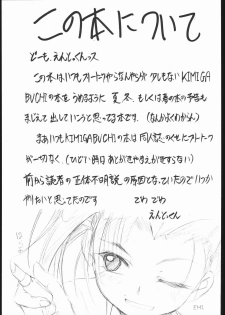 この本について
どーも、えんどっくんっス
この本はいつもフリートークやらなんやらが少しもないKIMIGA
BUCHIの本をうめるように夏、冬、もしくは春の本の予告も
まじえて出していこうと思ってる本です。(なんかよくわからん)
まあいつもKIMIGABUCHIの本は同人誌のくせにフリートーク
が一切なく(ひどい時は あとがきやまえがきですらない)
前から読者の正体不明説の原因となっていたのでいつか
作りたいと思ってたのです でわ でわ
えんどっくん